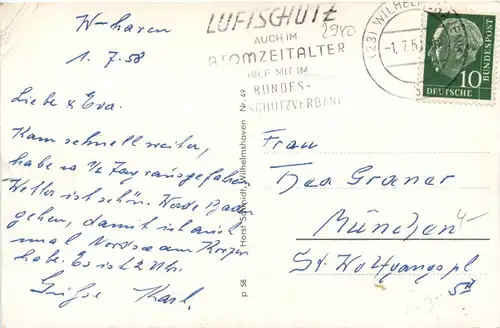 W-haven
1.7.58
Liebe Eva.
Kam schnell weiter,
habe 1/2 Tag rausgefahren
Wetter ist schön. Werde Baden
gehen, damit ich auch
mal Nordsee am Körper
habe. Es ist 2 Uhr.
Grüße Karl.
LUFTSCHUTZ
AUCH IM
ATOMZEITALTER
HILF MIT IM
BUNDES-
LUFTSCHUTZVERBAND
2940
(23) WILHELM
-1.7.5
10
DEUTSCHE
BUNDESPOST
Horst Schmidt, Wilhelmshaven Nr. 49
p 58
Frau
Graner
München
St. Wolfgangspl